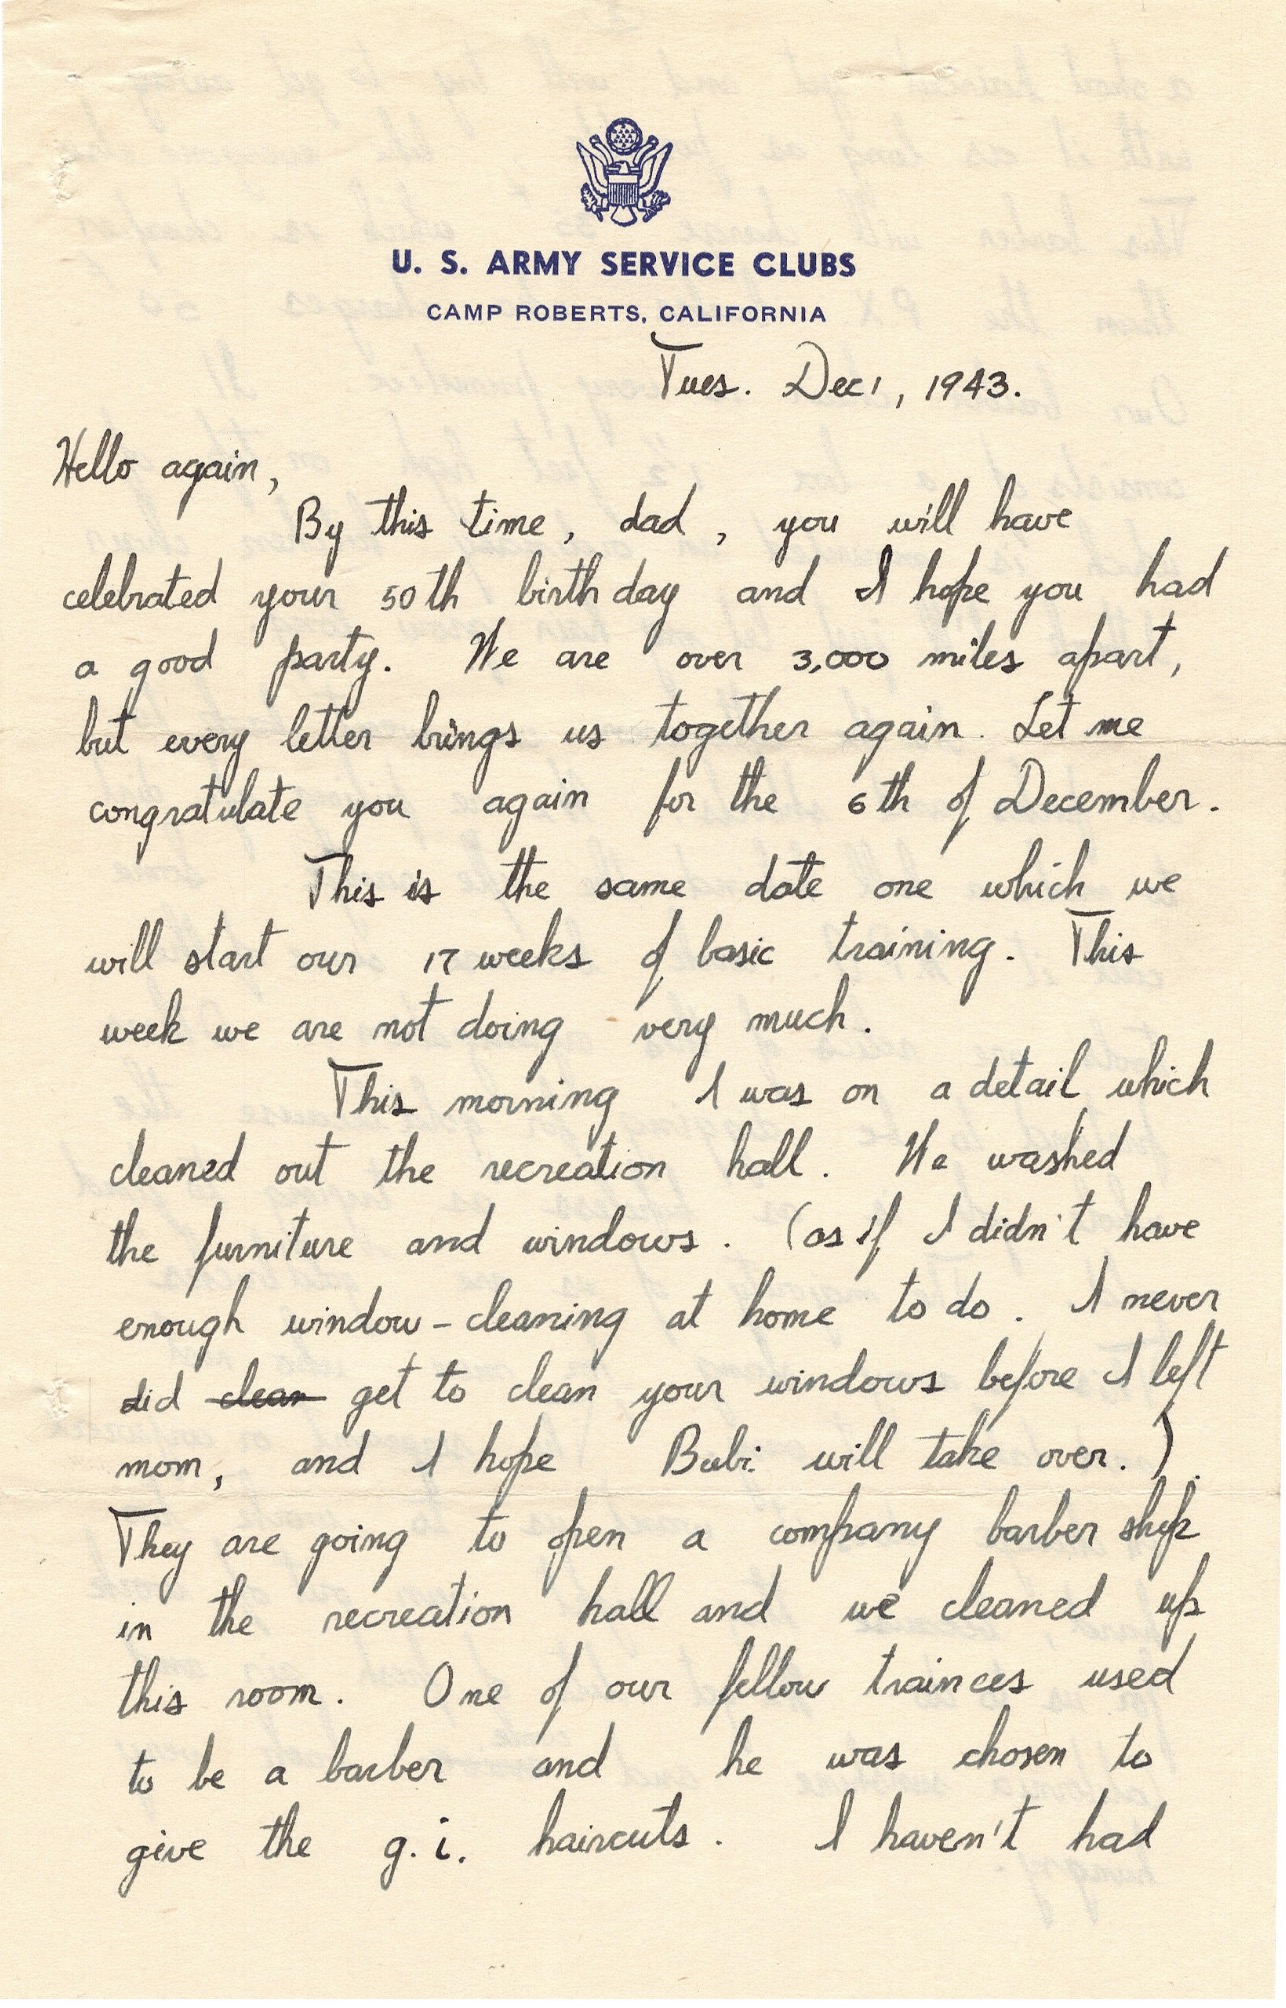 U. S. ARMY SERVICE CLUBS
CAMP ROBERTS, CALIFORNIA
Tues. Dec 1, 1943.
Hello again,
By this time, dad, you will have
celebrated your 50th birthday and I hope you had
a good party. We are over 3,000 miles apart,
but every letter brings us together again. Let me
congratulate you again for the 6th of December.
This is the same date one which we
will start our 17 weeks of basic training. This
week we are not doing very much.
This morning I was on a detail which
cleaned out the recreation hall. We washed
the furniture and windows. (as if I didn't have
enough window-cleaning at home to do. I never
did clean get to clean your windows before I left
mom, and I hope Bubi will take over.)
They are going to open a company barber shop
in the recreation hall and we cleaned up
this room. One of our fellow trainees used
to be a barber and he was chosen to
give the g.i. haircuts. I haven't had